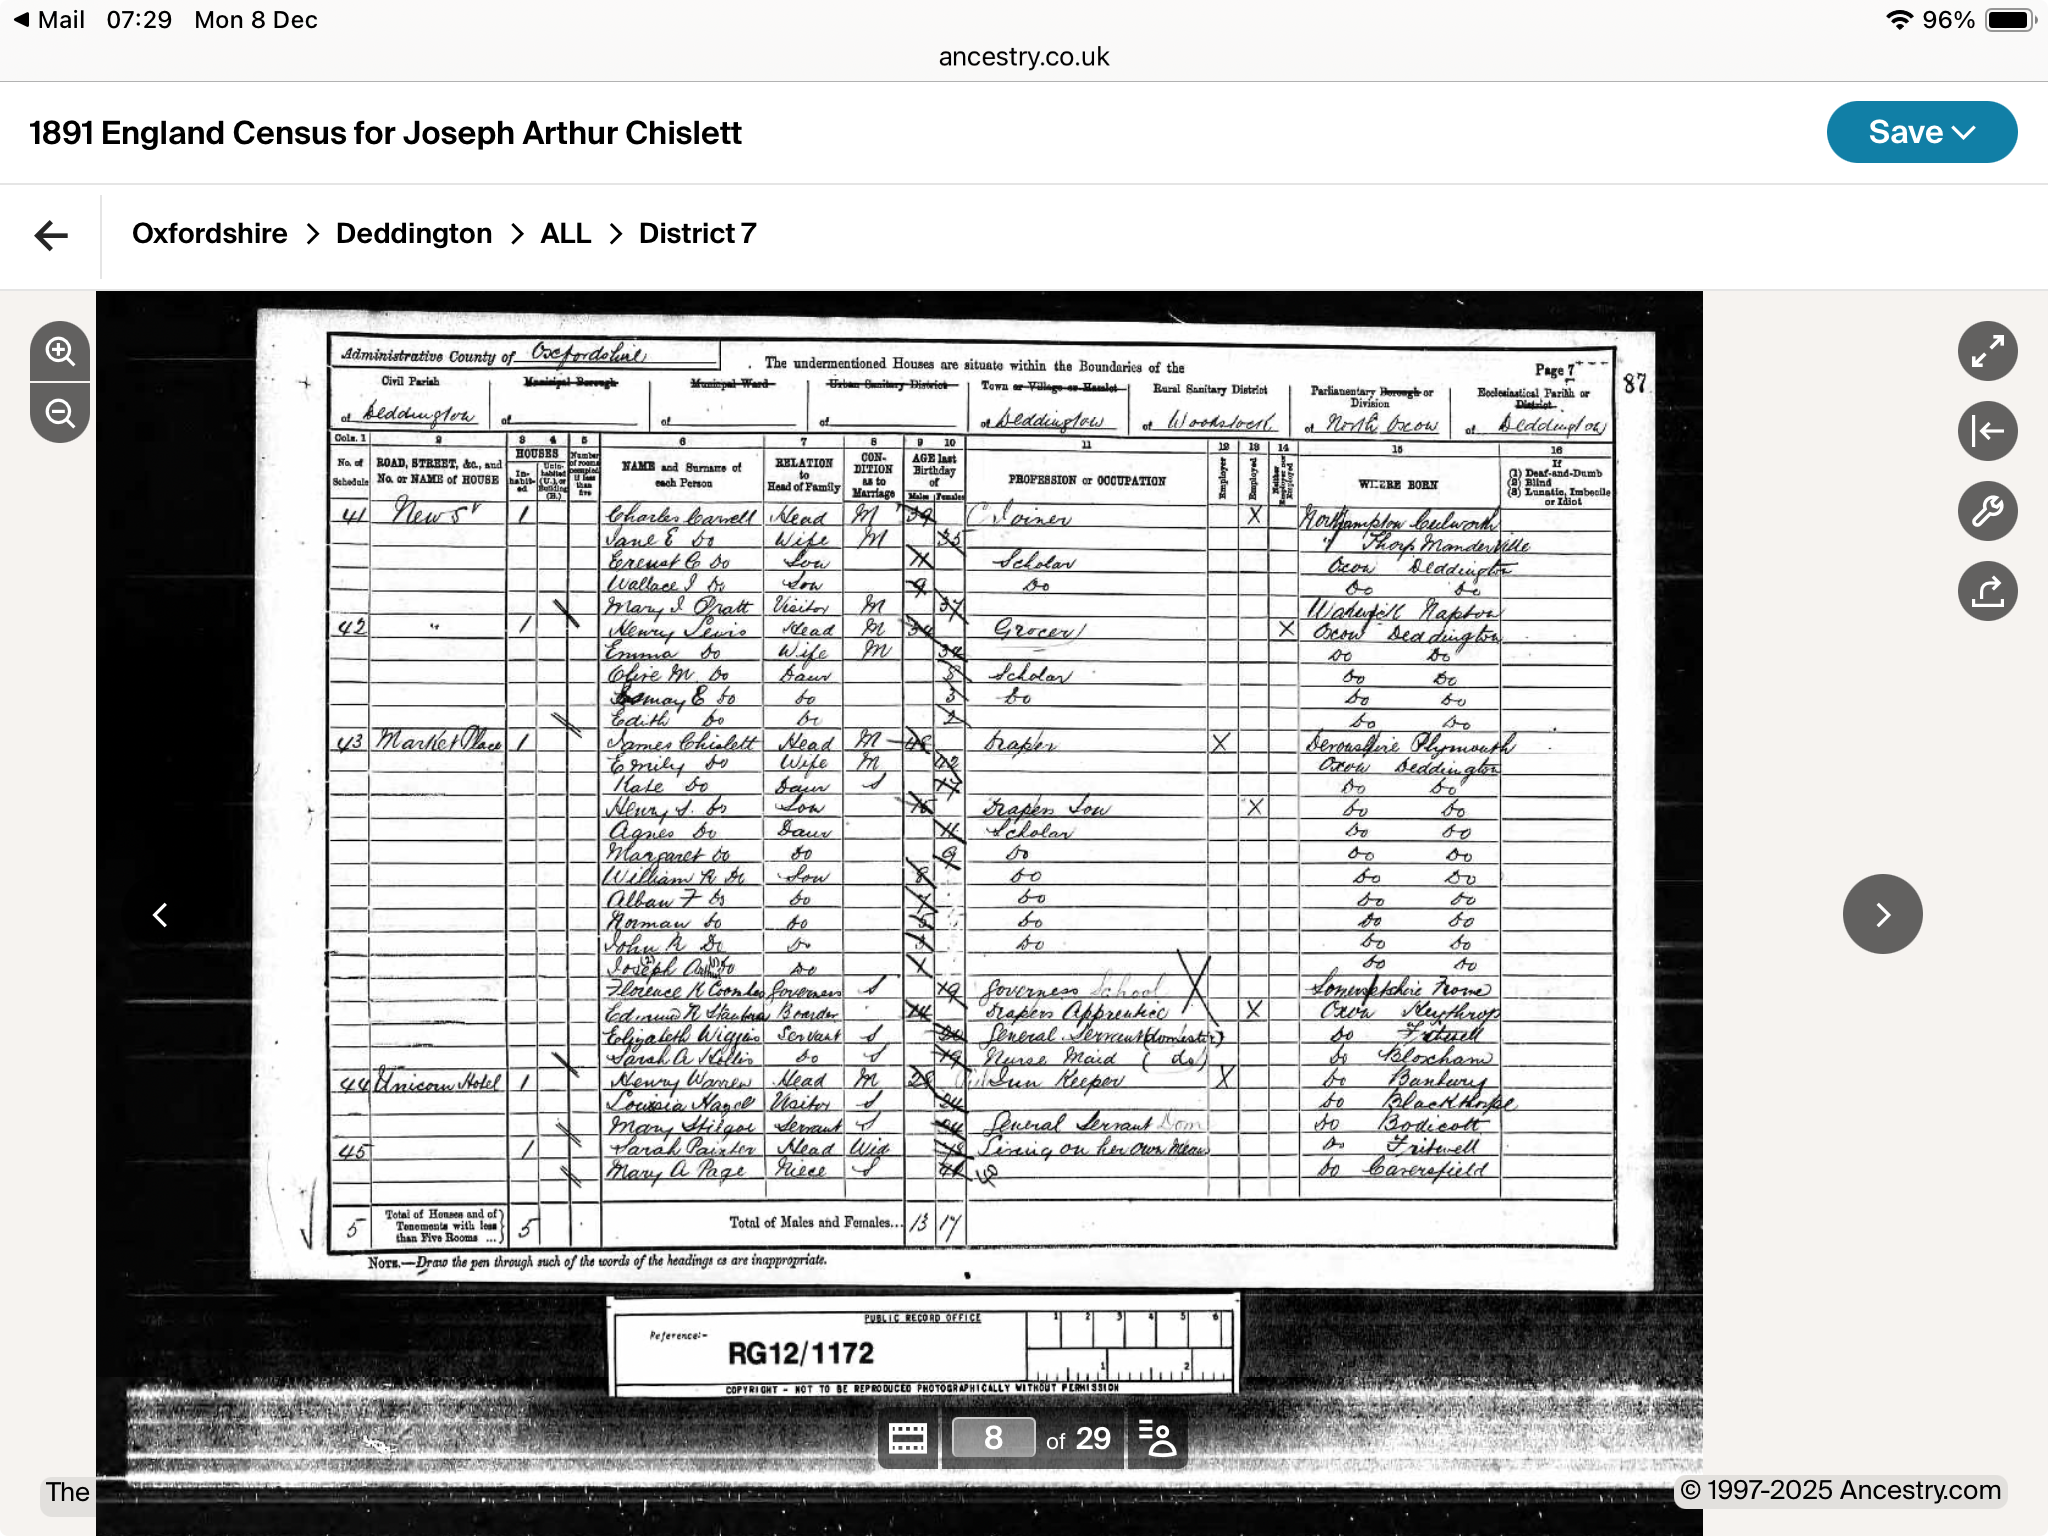 Mail 07:29 Mon 8 Dec 96%
ancestry.co.uk
1891 England Census for Joseph Arthur Chislett
Save
Oxfordshire > Deddington > ALL > District 7
Administrative County of Oxfordshire
The undermentioned Houses are situate within the Boundaries of the
Page 7
87
Civil Parish Municipal Borough Municipal Ward Urban Sanitary District Town or Village or Hamlet Rural Sanitary District Parliamentary Borough or Division Ecclesiastical Parish or District
of Deddington of of of of Deddington of Woodstock of North Oxon of Deddington
Cols. 1 2 3 4 5 6 7 8 9 10 11 12 13 14 15 16
No. of Schedule ROAD, STREET, &c., and No. or NAME of HOUSE HOUSES In-habit-ed Unin-habited (U.), or Building (B.) Number of rooms occupied if less than five NAME and Surname of each Person RELATION to Head of Family CON-DITION as to Marriage AGE last Birthday of Males Females PROFESSION or OCCUPATION Employer Employed Neither Employer nor Employed WHERE BORN If (1) Deaf-and-Dumb (2) Blind (3) Lunatic, Imbecile or Idiot
41 New St 1 Charles Head M 39 Joiner X Northampton Culworth
Jane E Do Wife M 35 " Thorp Manderville
Ernest C Do Son 11 Scholar Oxon Deddington
Wallace J Do Son 9 Do Do Do
Mary J Pratt Visitor M 37 Warwick Napton
42 " 1 Henry Lewis Head M 34 Grocer X Oxon Deddington
Emma Do Wife M 34 Do Do
Olive M. Do Daur 5 Scholar Do Do
E Do Do 3 Do Do Do
Edith Do Do 2 Do Do
43 Market Place 1 James Chislett Head M 48 Draper X Devonshire Plymouth
Emily Do Wife M 42 Oxon Deddington
Kate Do Daur S 17 Do Do
Henry S. Do Son 15 Drapers Son X Do Do
Agnes Do Daur 11 Scholar Do Do
Margaret Do Do 9 Do Do Do
William R Do Son 8 Do Do Do
Alban F Do Do 7 Do Do Do
Norman Do Do 5 Do Do Do
John R Do Do 3 Do Do Do
Joseph Arthur Do Do 1 Do Do
Florence K Coombes Governess S 19 Governess School X Somersetshire Frome
Edmund R Boarder 14 Drapers Apprentice X Oxon Heythrop
Elizabeth Wiggins Servant S 20 General Servant (domestic) Do Fritwell
Sarah A Hollis Do S 19 Nurse Maid ( do) Do Bloxham
44 Unicorn Hotel 1 Henry Warren Head M 28 Inn Keeper X Do Banbury
Louisia Hazel Visitor S 24 Do Blackthorpe
Mary Stilgoe Servant S 24 General Servant Dom Do Bodicott
45 1 Sarah Painter Head Wid 78 Living on her own Means Do Fritwell
Mary A Page Niece S 41 Do Caversfield
5 Total of Houses and of Tenements with less than Five Rooms ... 5 Total of Males and Females... 13 17
NOTE.—Draw the pen through such of the words of the headings as are inappropriate.
PUBLIC RECORD OFFICE
1 2 3 4 5 6
Reference:-
RG12/1172
1 2
COPYRIGHT - NOT TO BE REPRODUCED PHOTOGRAPHICALLY WITHOUT PERMISSION
8 of 29
The
© 1997-2025 Ancestry.com